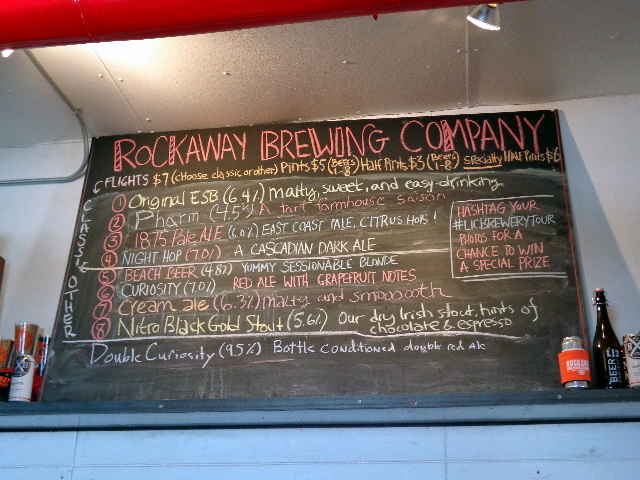 ROCKAWAY BREWING COMPANY
FLIGHTS $7 (choose classic or other) Pints $5 (Beers 1-8) Half Pints $3 (Beers 1-8) Specialty Half Pints $6
CLASSIC
1 Original ESB (6.4%) malty, sweet, and easy-drinking
2 Pharm (4.5%) A tart farmhouse saison
3 1875 Pale ALE (6.0%) EAST COAST PALE, CITRUS HOPS!
4 NIGHT HOP (7.0%) A CASCADIAN DARK ALE
OTHER
5 BEACH BEER (4.8%) YUMMY SESSIONABLE BLONDE
6 CURIOSITY (7.0%) RED ALE WITH GRAPEFRUIT NOTES
7 Cream ale (6.3%) malty and smooooth
8 Nitro Black Gold Stout (5.6%) Our dry Irish stout, hints of
chocolate & espresso
Double Curiosity (9.5%) Bottle conditioned double red Ale
HASHTAG YOUR
#LICBREWERYTOUR
PHOTOS FOR A
CHANCE TO WIN
A SPECIAL PRIZE
ROCKAWAY
BEER